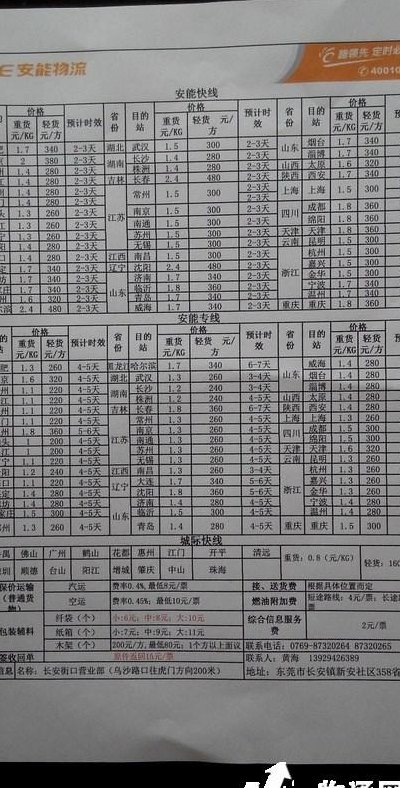 E安能物流
稳领先 定时必
40010
安能快线
价格 预计时效 省份 目的站 价格 预计时效 省份 目的站 价格
重货元/KG 轻货元/方 重货元/KG 轻货 元/方 重货元/KG 轻货元/方
肥 1.7 340 2-3天 湖北 武汉 1.5 300 2-3天 山东 烟台 1.7 340
京 2 380 2-3天 湖南 长沙 1.4 280 2-3天 淄博 1.7 340
州 1.4 280 2-3天 株洲 1.4 280 2-3天 山西 太原 1.6 320
1.4 280 2-3天 吉林 长春 2.4 480 2-3天 陕西 西安 1.7 340
门 1.4 280 2-3天 江苏 常州 1.5 300 2-3天 上海 上海 1.5 300
头 1.3 260 2-3天 南京 1.5 300 2-3天 四川 成都 1.8 360
1.3 260 2-3天 南通 1.5 300 2-3天 绵阳 1.8 360
1.3 260 2-3天 苏州 1.5 300 2-3天 天津 天津 1.8 360
阳 1.4 280 2-3天 无锡 1.5 300 2-3天 云南 昆明 1.5 300
口 1.4 280 2-3天 江西 南昌 1.5 300 2-3天 浙江 杭州 1.5 300
定 1.7 340 2-3天 辽宁 沈阳 2.4 480 2-3天 嘉兴 1.5 300
坊 1.7 340 2-3天 山东 济南 1.7 340 2-3天 金华 1.5 300
庄 1.7 340 2-3天 临沂 1.8 360 2-3天 宁波 1.7 340
州 1.6 320 2-3天 青岛 1.7 340 2-3天 温州 1.7 340
尔滨 2.4 480 2-3天 威海 1.7 340 2-3天 重庆 重庆 1.8 360
安能专线
价格 预计时效 省份 目的站 价格 预计时效 省份 目的站 价格
重货元/KG 轻货元/方 重货元/KG 轻货 元/方 重货元/KG 轻货元/方
肥 1.3 260 4-5天 黑龙江 哈尔滨 1.7 340 6-7天 山东 威海 1.4 280
京 1.6 320 4-5天 湖北 武汉 1.3 260 3-4天 烟台 1.4 280
州 1.1 220 4-5天 湖南 长沙 1.2 240 3-4天 淄博 1.4 280
1.1 220 4-5天 株洲 1.2 240 3-4天 山西 太原 1.4 280
州 1.1 220 4-5天 吉林 长春 1.8 360 6-7天 陕西 西安 1.4 280
门 1.8 360 5-6天 江苏 常州 1.3 260 4-5天 上海 上海 1.3 260
头 200 4-5天 南京 1.3 260 4-5天 四川 成都 1.5 300
200 4-5天 南通 1.3 260 4-5天 绵阳 1.5 300
200 4-5天 苏州 1.3 260 4-5天 天津 天津 1.6 320
宁 1.1 220 4-5天 无锡 1.3 260 4-5天 云南 昆明 1.3 260
阳 1.2 240 4-5天 江西 南昌 1.3 260 3-4天 浙江 杭州 1.3 260
口 1.1 220 4-5天 辽宁 大连 1.7 340 5-6天 嘉兴 1.3 260
定 1.4 280 4-5天 沈阳 1.8 360 5-6天 金华 1.3 260
坊 1.4 280 4-5天 山东 济南 1.4 280 4-5天 宁波 1.4 280
庄 1.4 280 4-5天 临沂 1.4 280 4-5天 温州 1.4 280
州 1.3 260 4-5天 青岛 1.4 280 4-5天 重庆 重庆 1.5 300
城际快线
禺 佛山 广州 鹤山 花都 惠州 江门 开平 清远 重货:0.8(元/KG) 轻货:160
圳 顺德 台山 阳江 增城 肇庆 中山 珠海
保价运输(普通货物) 汽运 费率0.4%,最低8元/票 接、送货费 根据具体位置而定
空运 费率0.45%,最低10元/票 燃油附加费 短途路线:4元/票;长途
包装辅料 纤袋(个) 小:6元;中:8元;大:10元 综合信息服务费 2元/票
纸箱(个) 小:7元;中:9元;大:11元
木架(个) 200元/方,最低60元;1个方以上面议 联系电话:0769-87320264 87320265
签收回单 原件返回15元/票 联系人:黄海 13929426389
信息 名称:长安街口营业部(乌沙路口往虎门方向200米) 地址:东莞市长安镇新安社区358省
物通网